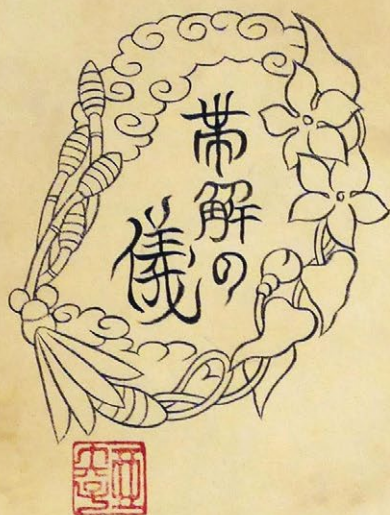 帯解の
儀